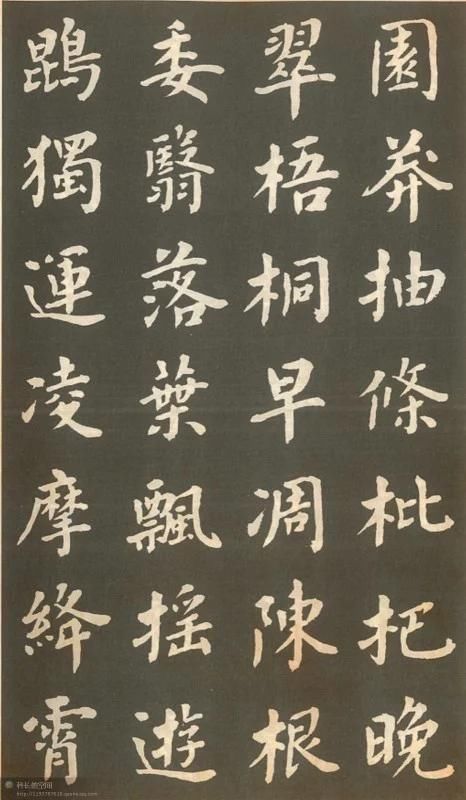 園莽抽條枇杷晚
翠梧桐早凋陳根
委翳落葉飄揺遊
鵾獨運凌摩絳霄